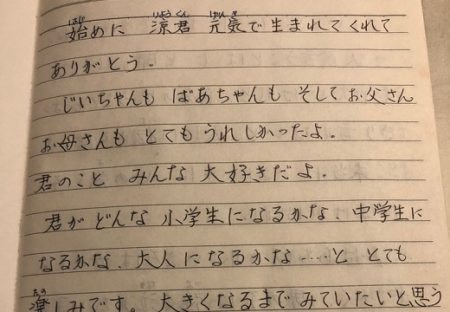 始めに 涼君 元気で生まれてくれて
ありがとう。
じいちゃんも ばあちゃんも そしてお父さん
お母さんも とても うれしかったよ。
君のこと みんな 大好きだよ。
君が どんな 小学生になるかな、中学生に
なるかな、大人に なるかな……と とても
楽しみです。 大きくなるまで みていたいと思う